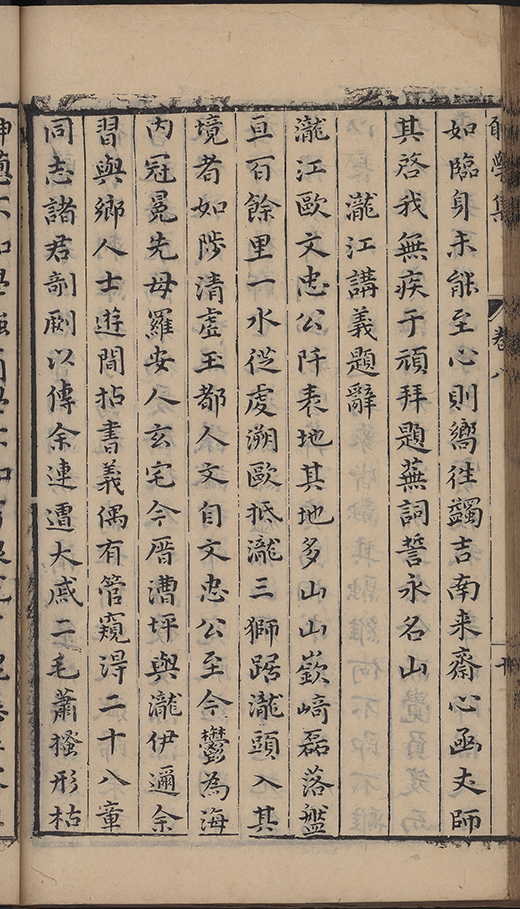 學集 卷八
如臨身未能至心則嚮徃蠲吉南来齋心函丈師
其啓我無疾于頑拜題蕪詞誓永名山
瀧江講義題辭
瀧江歐文忠公阡表地其地多山山嶔﨑磊落盤
亘百餘里一水從虔溯歐抵瀧三獅踞瀧頭入其
境者如陟清虛玉都人文自文忠公至今鬱為海
内冠冕先母羅安人玄宅今厝漕坪與瀧伊邇余
習與鄉人士遊間拈書義偶有管窺淂二十八章
同志諸君剞劂以傳余連遭大戚二毛蕭搔形枯